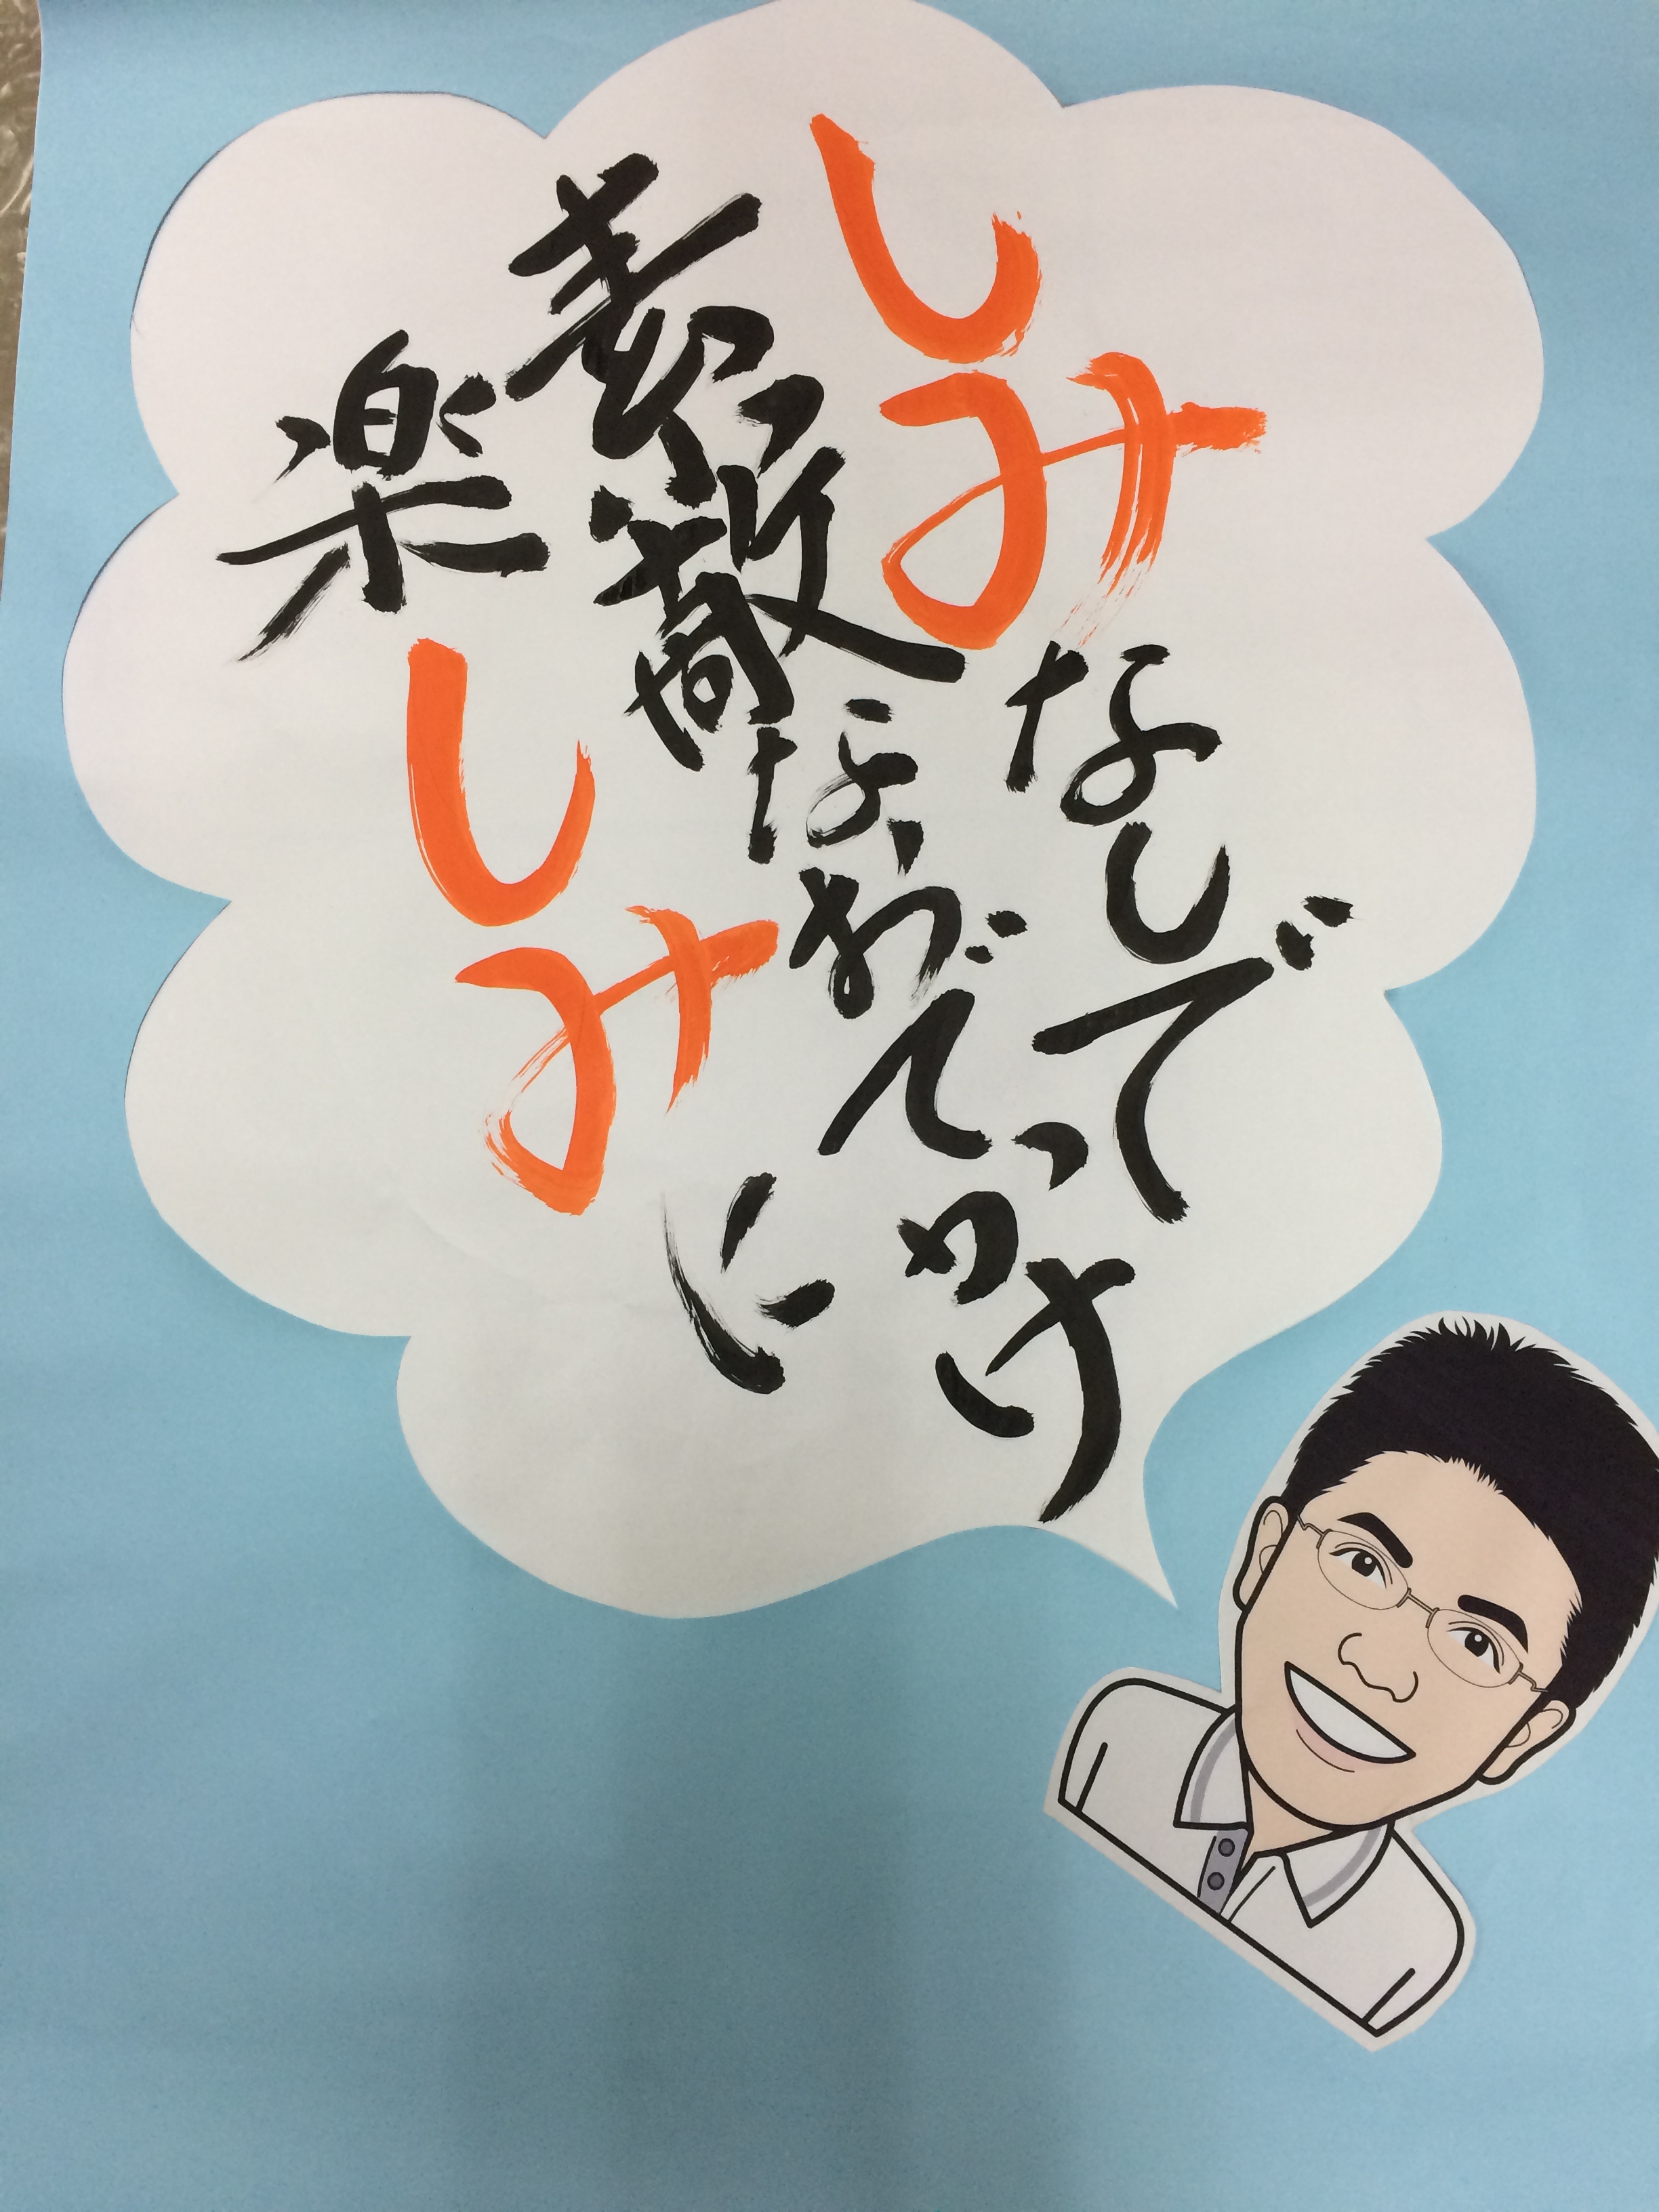 しみなしで
素敵なおでかけ
楽しみに